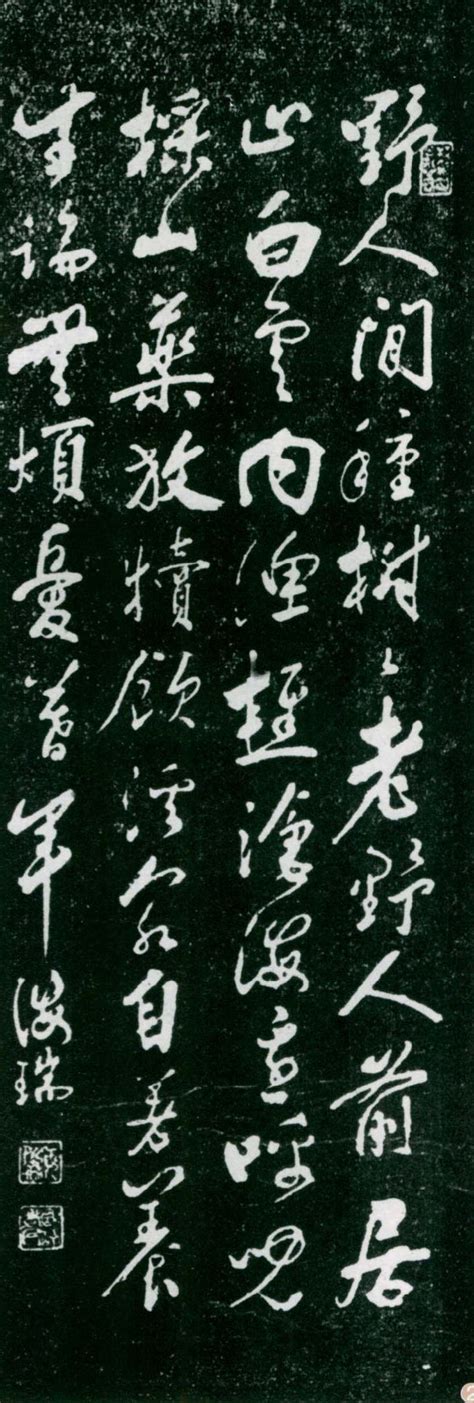 野人間種樹〻老野人前居
止白雲内漁樵滄海邊呼兒
採山藥放犢飲溪泉自著養
生論無煩憂暮年海瑞